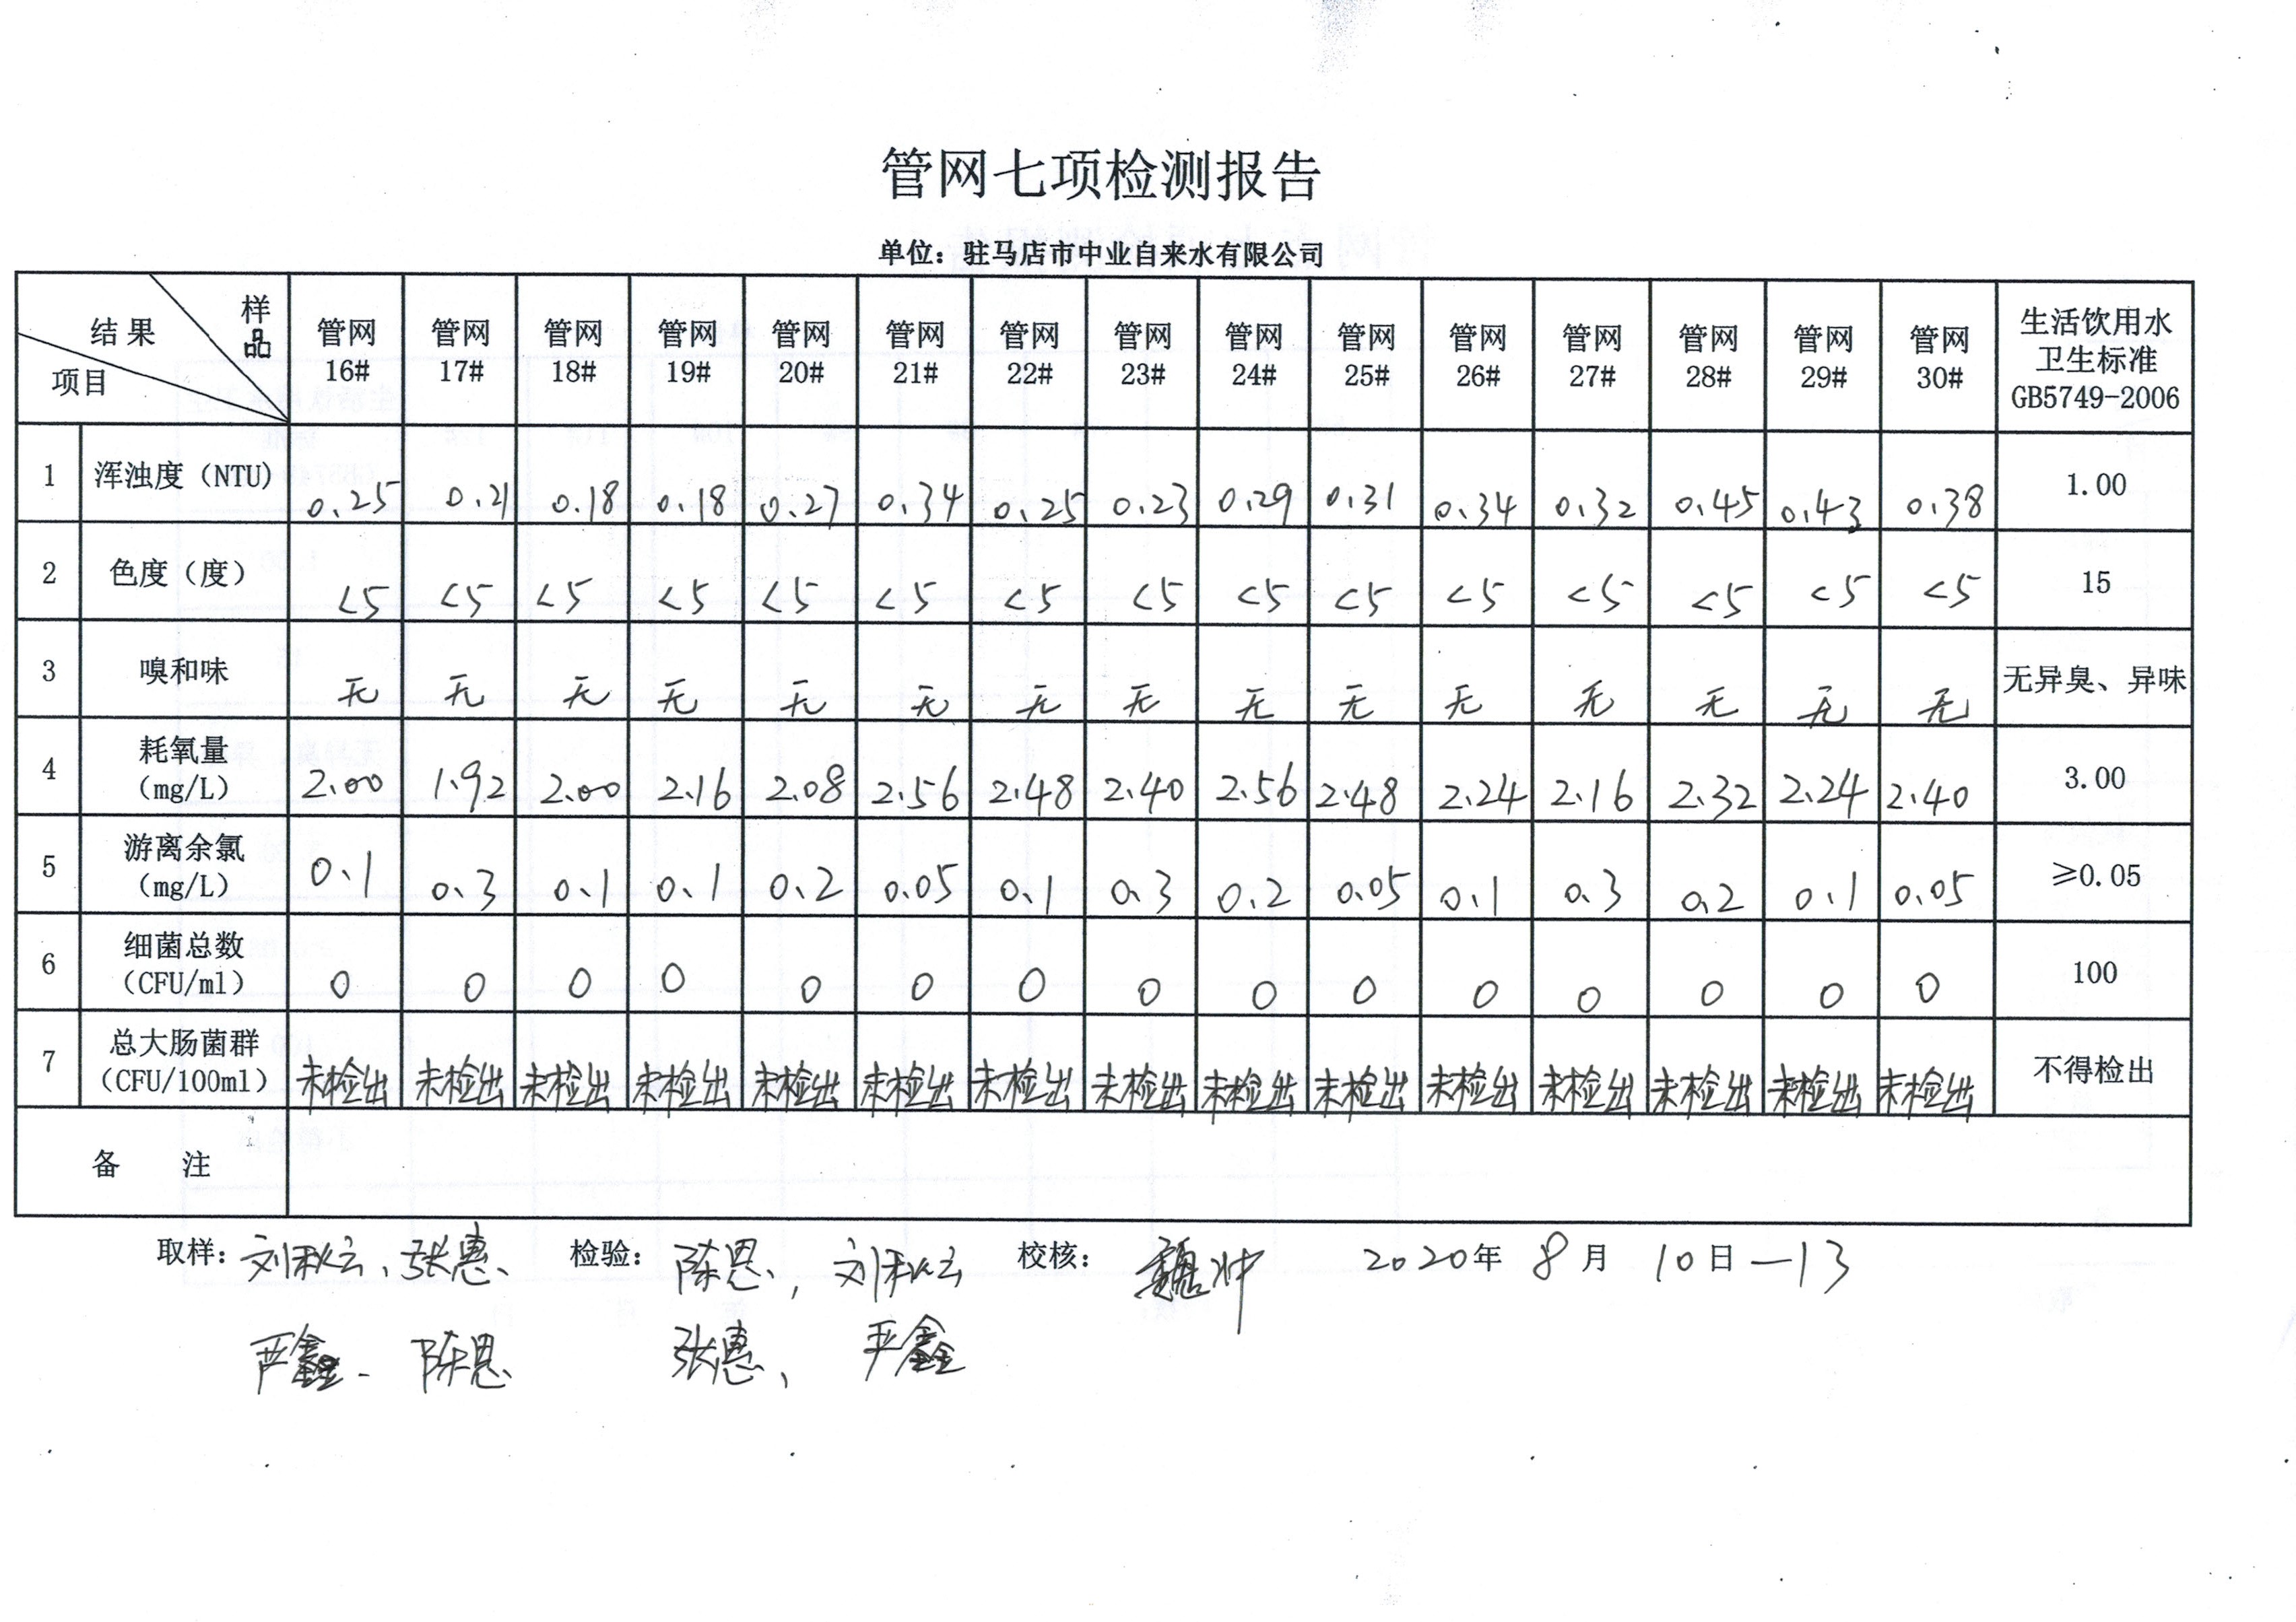 管网七项检测报告
单位：驻马店市中业自来水有限公司
结果 样品 项目 管网16# 管网17# 管网18# 管网19# 管网20# 管网21# 管网22# 管网23# 管网24# 管网25# 管网26# 管网27# 管网28# 管网29# 管网30# 生活饮用水卫生标准GB5749-2006
1 浑浊度（NTU） 0.25 0.21 0.18 0.18 0.27 0.34 0.25 0.23 0.29 0.31 0.34 0.32 0.45 0.43 0.38 1.00
2 色度（度） <5 <5 <5 <5 <5 <5 <5 <5 <5 <5 <5 <5 <5 <5 <5 15
3 嗅和味 无 无 无 无 无 无 无 无 无 无 无 无 无 无 无 无异臭、异味
4 耗氧量（mg/L） 2.00 1.92 2.00 2.16 2.08 2.56 2.48 2.40 2.56 2.48 2.24 2.16 2.32 2.24 2.40 3.00
5 游离余氯（mg/L） 0.1 0.3 0.1 0.1 0.2 0.05 0.1 0.3 0.2 0.05 0.1 0.3 0.2 0.1 0.05 ≥0.05
6 细菌总数（CFU/ml） 0 0 0 0 0 0 0 0 0 0 0 0 0 0 0 100
7 总大肠菌群（CFU/100ml） 未检出 未检出 未检出 未检出 未检出 未检出 未检出 未检出 未检出 未检出 未检出 未检出 未检出 未检出 未检出 不得检出
备 注
取样：刘秋云、张惠、 检验：陈恩、, 刘秋云 校核：魏冲 2020年 8月 10日—13
严鑫、陈恩 张惠、严鑫